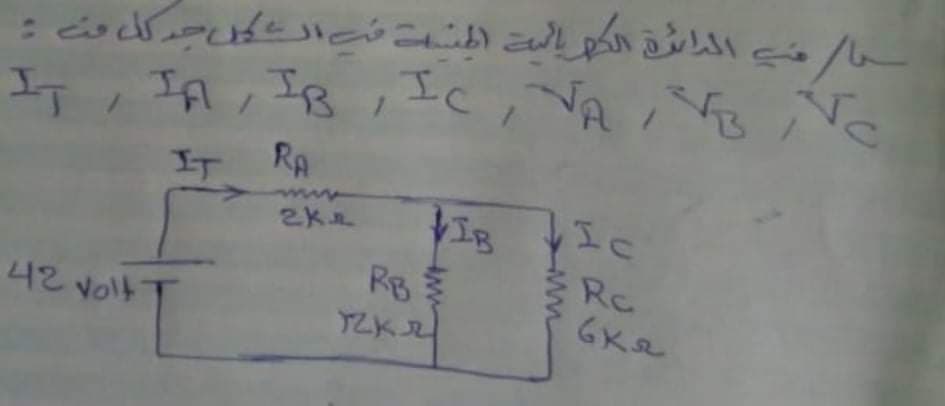 س١/ في الدائرة الكهربائية المبينة في الشكل جد كل من :
I_T , I_A , I_B , I_C , V_A , V_B , V_C
I_T R_A
2KΩ
I_B I_C
42 Volt
R_B R_C
12KΩ 6KΩ